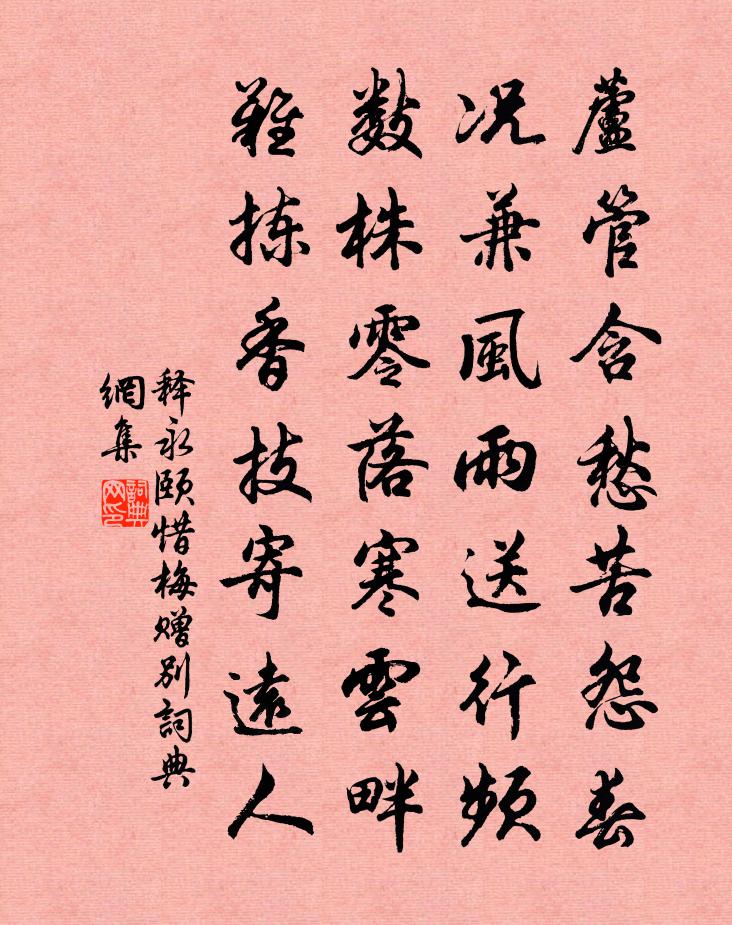 蘆管含愁苦怨春
况兼風雨送行頻
數株零落寒雲畔
難拣香技寄遠人
释永頤惜梅赠别詞典
網集
詞典
网印